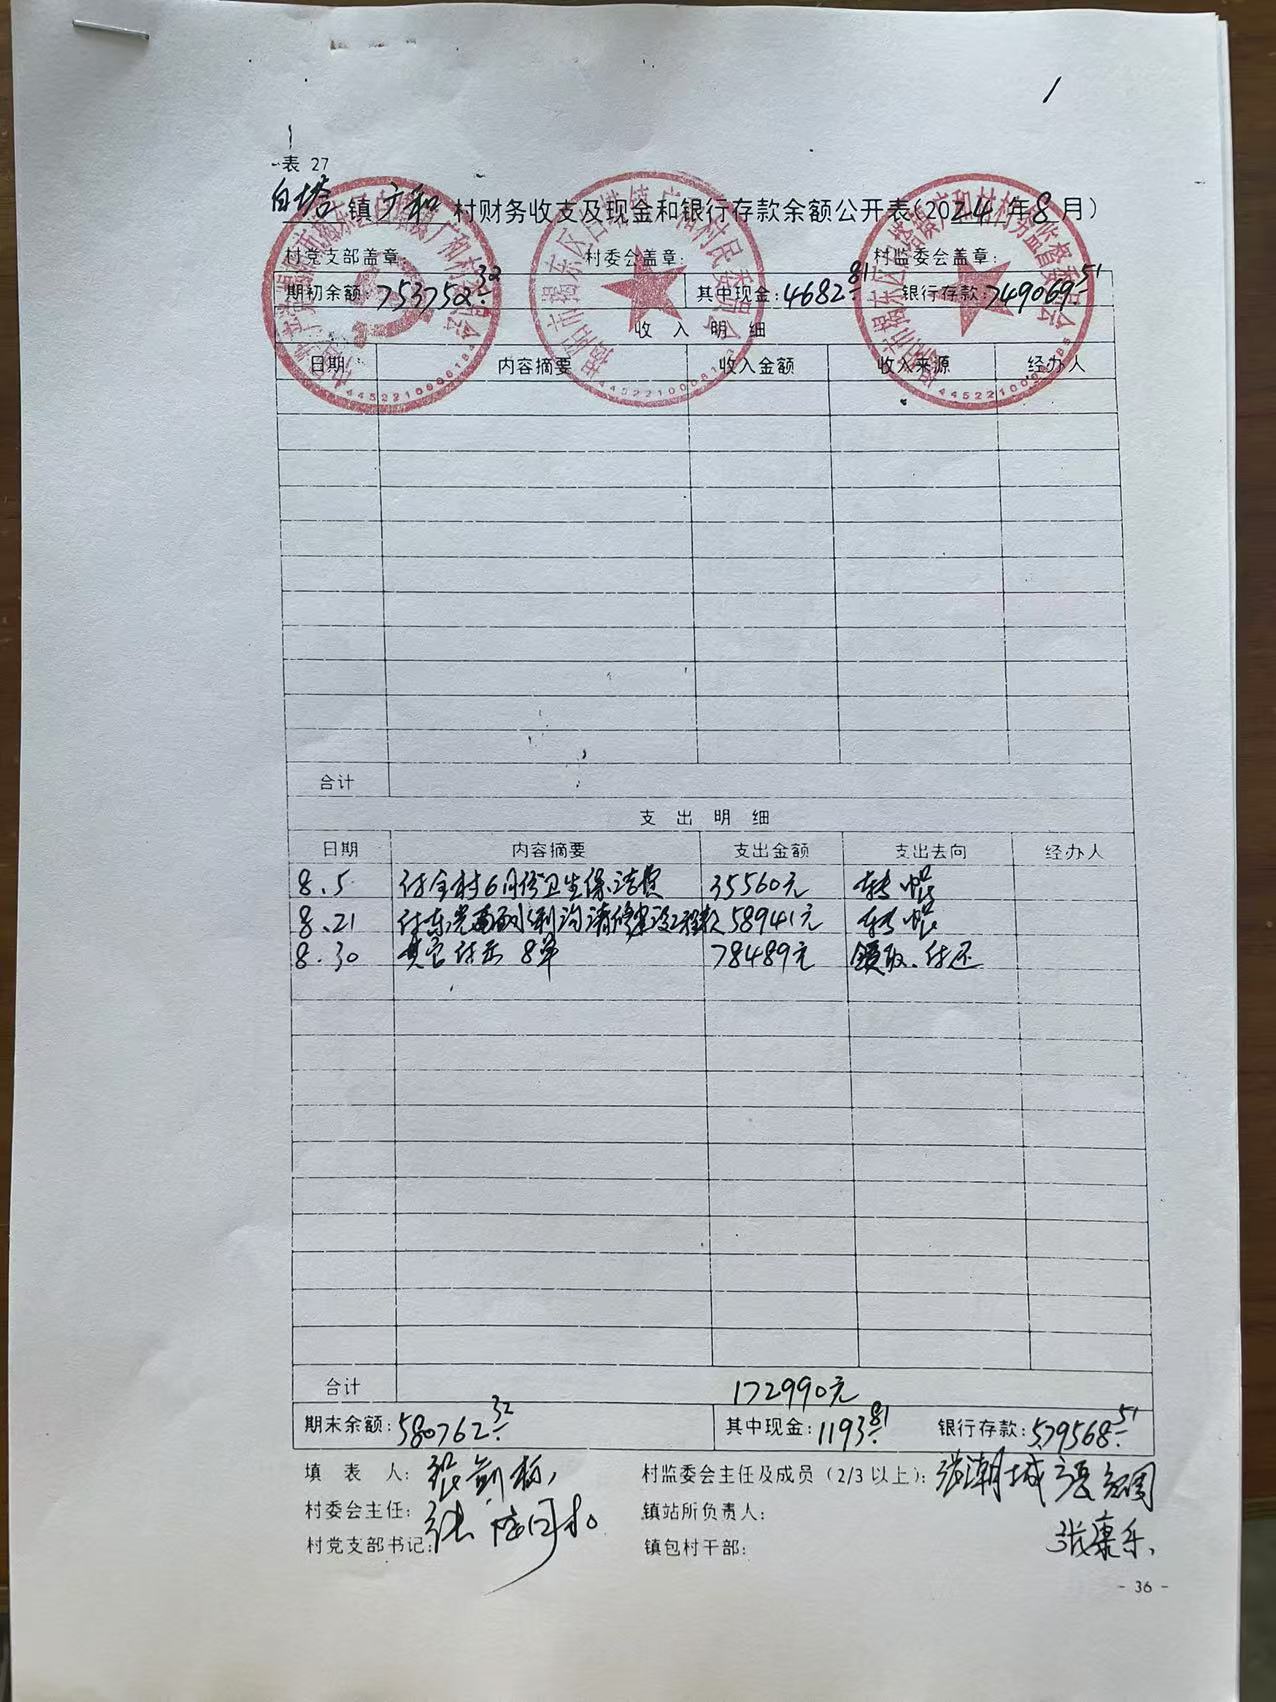 1
表 27
白塔镇广和村财务收支及现金和银行存款余额公开表(2024年8月)
村党支部盖章: 村委会盖章: 村监委会盖章:
期初余额:753752.32 其中现金:4682.81 银行存款:749069.51
收 入 明 细
日期 内容摘要 收入金额 收入来源 经办人
合计
支 出 明 细
日期 内容摘要 支出金额 支出去向 经办人
8.5 付全村6月份卫生保洁费 35560元 转帐
8.21 付东光 水利沟清修建设工程款 58941元 转帐
8.30 其它付出 8单 78489元 领取、付还
合计 172990元
期末余额:580762.32 其中现金:1193.81 银行存款:579568.51
填 表 人: 张
村监委会主任及成员(2/3以上): 张潮城 张
村委会主任: 张
镇站所负责人:
村党支部书记:
镇包村干部:
张康乐
- 36 -